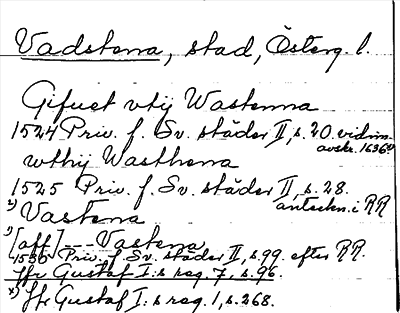 Vadstena, stad, Österg. l.
Gifuet vtij Wastenna
1524 Priv. f. Sv. städer II, s. 20. vidim.
avskr. 1636
wthij Wasthena
1525 Priv. f. Sv. städer II, s. 28.
anteckn. i RR
x) Vastena
[aff] --- Vastena
1530 Priv. f. Sv. städer II, s. 99. efter RR.
Jfr Gustaf I:s reg. 7, s. 96.
x) Jfr Gustaf I:s reg. 1, s. 268.